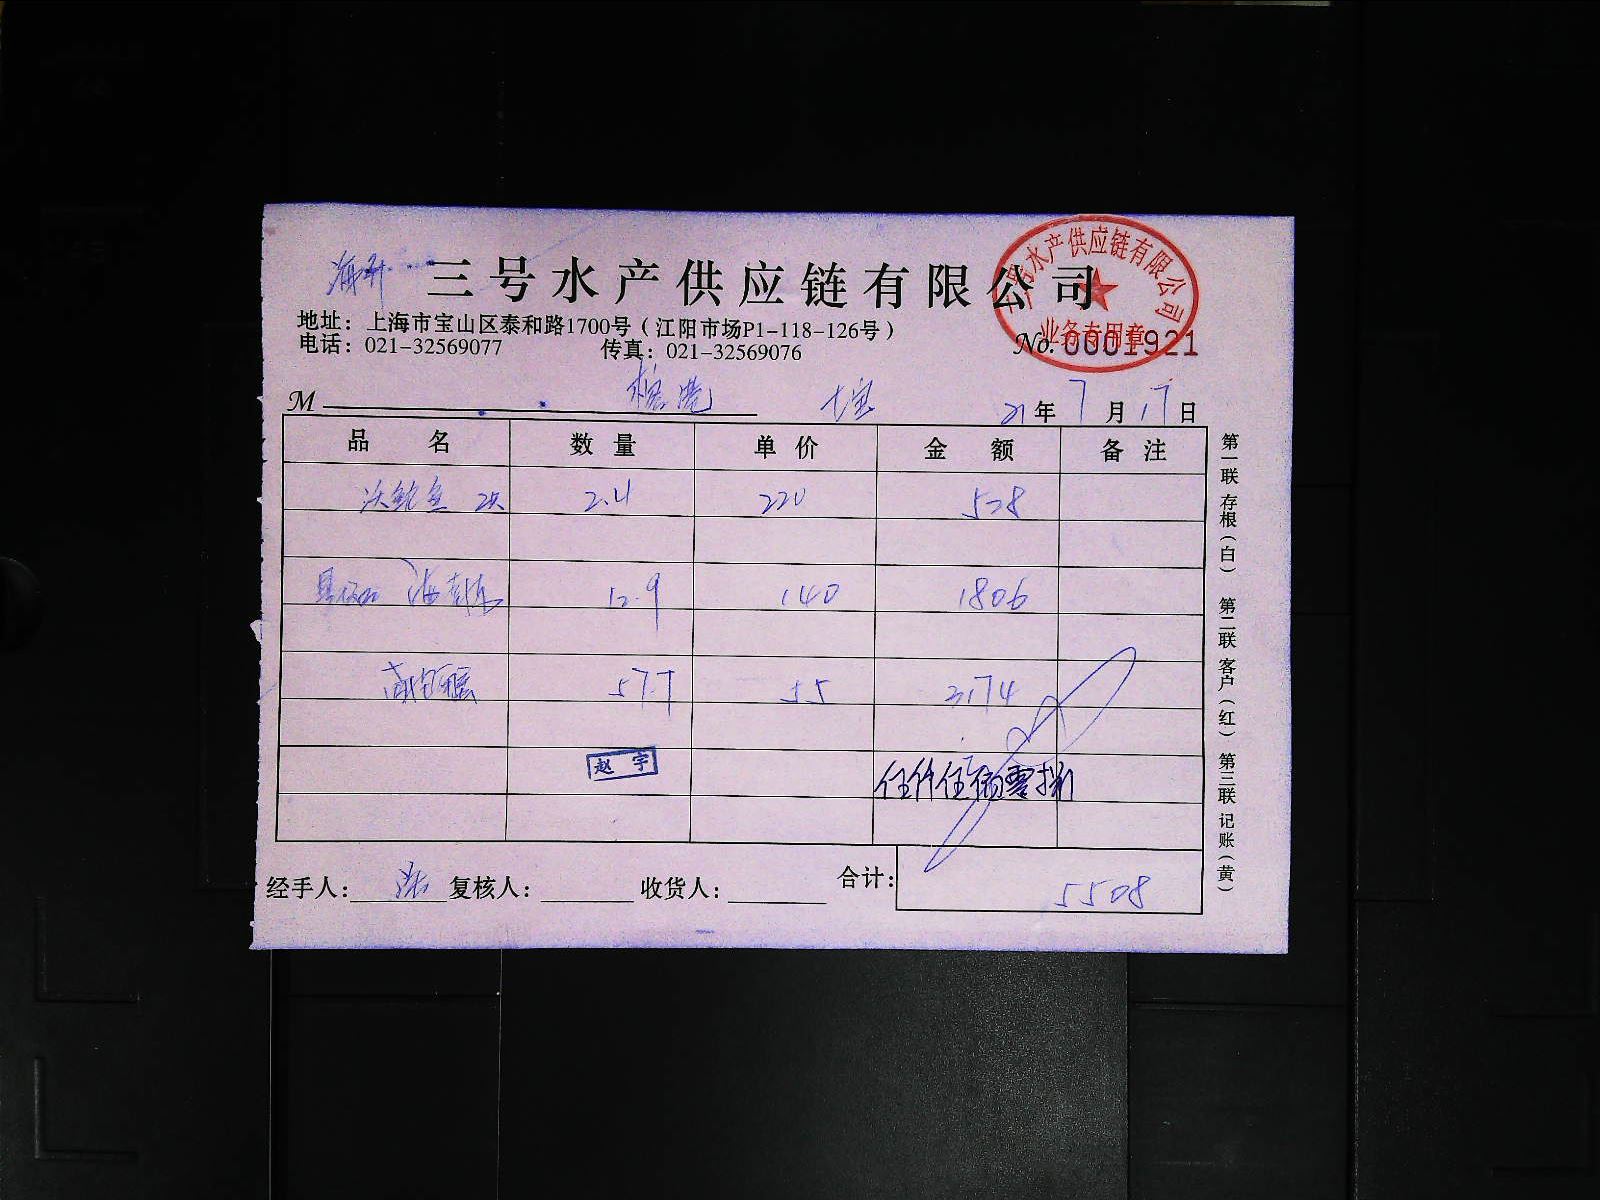 三号水产供应链有限公司
三号水产供应链有限公司
业务专用章
地址：上海市宝山区泰和路1700号（江阳市场P1-118-126号）
电话：021-32569077 传真：021-32569076
No. 0001921
M 21年7月17日
品名 数量 单价 金额 备注
2.4 220 528
12.9 140 1806
57.7 55 3174
赵宇
伍仟伍佰零捌
合计：5508
经手人： 复核人： 收货人：
第一联 存根（白） 第二联 客户（红） 第三联 记账（黄）